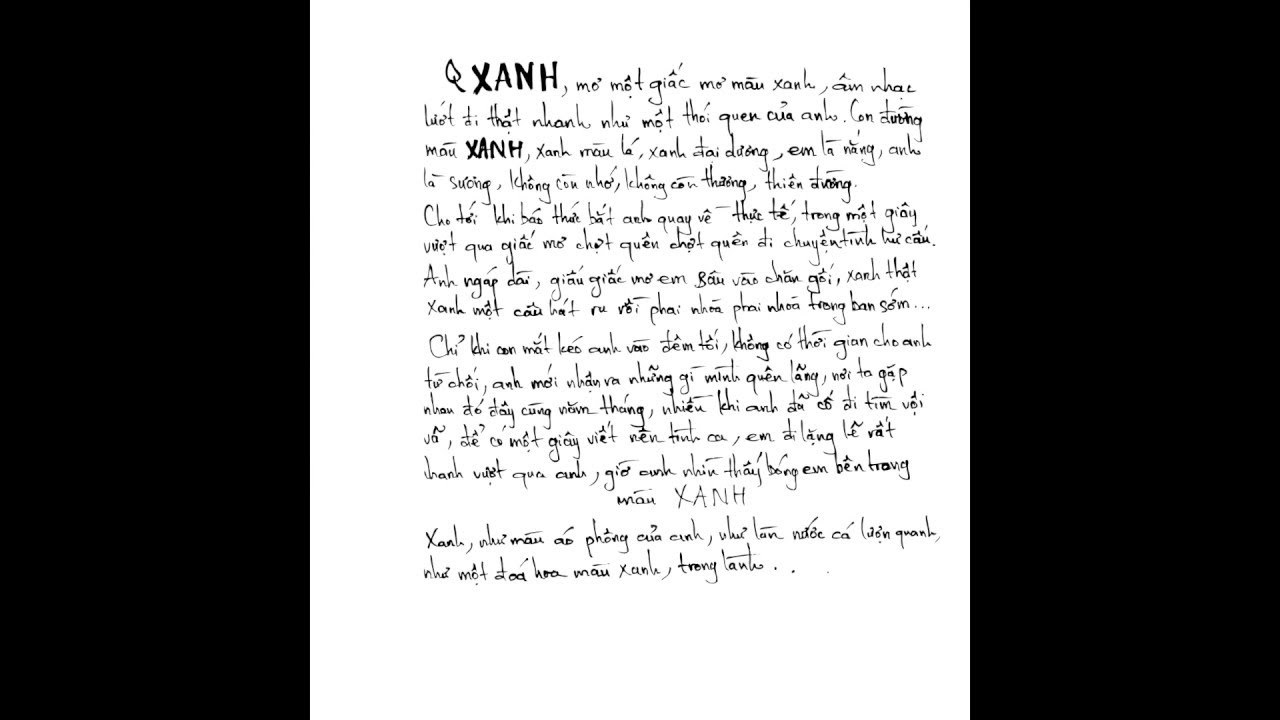 Q XANH, mơ một giấc mơ màu xanh, âm nhạc
lướt đi thật nhanh như một thói quen của anh. Con đường
màu XANH, xanh màu lá, xanh đại dương, em là nắng, anh
là sương, không còn nhớ, không còn thương, thiên đường.
Cho tới khi báo thức bắt anh quay về thực tế, trong một giây
vượt qua giấc mơ chợt quên chợt quên đi chuyện tình hư cấu.
Anh ngáp dài, giấu giấc mơ em sâu vào chăn gối, xanh thật
xanh một câu hát ru rồi phai nhoà phai nhoà trong ban sớm...
Chỉ khi con mắt kéo anh vào đêm tối, không có thời gian cho anh
từ chối, anh mới nhận ra những gì mình quên lãng, nơi ta gặp
nhau đó đầy cùng năm tháng, nhiều khi anh đã cố đi tìm vội
vã, để có một giây viết nên tình ca, em đi lặng lẽ rất
nhanh vượt qua anh, giờ anh nhìn thấy bóng em bên trong
màu XANH
Xanh, như màu áo phông của anh, như làn nước cá lượn quanh,
như một đoá hoa màu xanh, trong lành...